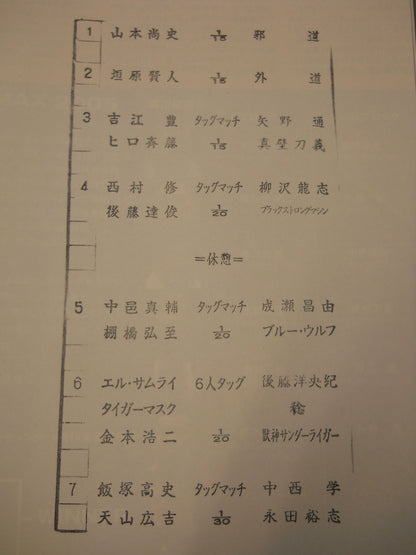 1 山本尚史 1/15 邪道
2 垣原賢人 1/15 外道
3 吉江豊 タッグマッチ 矢野通
ヒロ斉藤 1/15 真壁刀義
4 西村修 タッグマッチ 柳沢龍志
後藤達俊 1/20 ブラックストロングマシン
=休憩=
5 中邑真輔 タッグマッチ 成瀬昌由
棚橋弘至 1/20 ブルー・ウルフ
6 エル・サムライ 6人タッグ 後藤洋央紀
タイガーマスク 稔
金本浩二 1/20 獣神サンダーライガー
7 飯塚高史 タッグマッチ 中西学
天山広吉 1/30 永田裕志